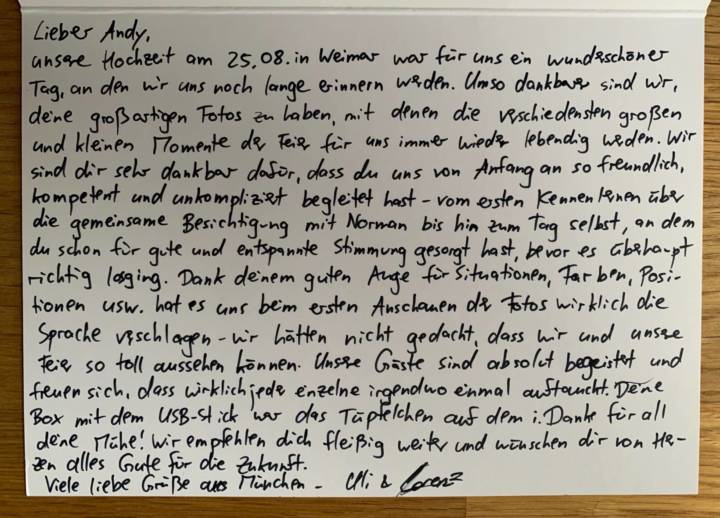 Lieber Andy,
unsere Hochzeit am 25.08. in Weimar war für uns ein wunderschöner
Tag, an den wir uns noch lange erinnern werden. Umso dankbarer sind wir,
deine großartigen Fotos zu haben, mit denen die verschiedensten großen
und kleinen Momente der Feier für uns immer wieder lebendig werden. Wir
sind dir sehr dankbar dafür, dass du uns von Anfang an so freundlich,
kompetent und unkompliziert begleitet hast - vom ersten Kennenlernen über
die gemeinsame Besichtigung mit Norman bis hin zum Tag selbst, an dem
du schon für gute und entspannte Stimmung gesorgt hast, bevor es überhaupt
richtig losging. Dank deinem guten Auge für Situationen, Farben, Posi-
tionen usw. hat es uns beim ersten Anschauen der Fotos wirklich die
Sprache verschlagen - wir hätten nicht gedacht, dass wir und unsere
Feier so toll aussehen können. Unsere Gäste sind absolut begeistert und
freuen sich, dass wirklich jeder einzelne irgendwo einmal auftaucht. Deine
Box mit dem USB-Stick war das Tüpfelchen auf dem i. Danke für all
deine Mühe! Wir empfehlen dich fleißig weiter und wünschen dir von Her-
zen alles Gute für die Zukunft.
Viele liebe Grüße aus München - & Lorenz